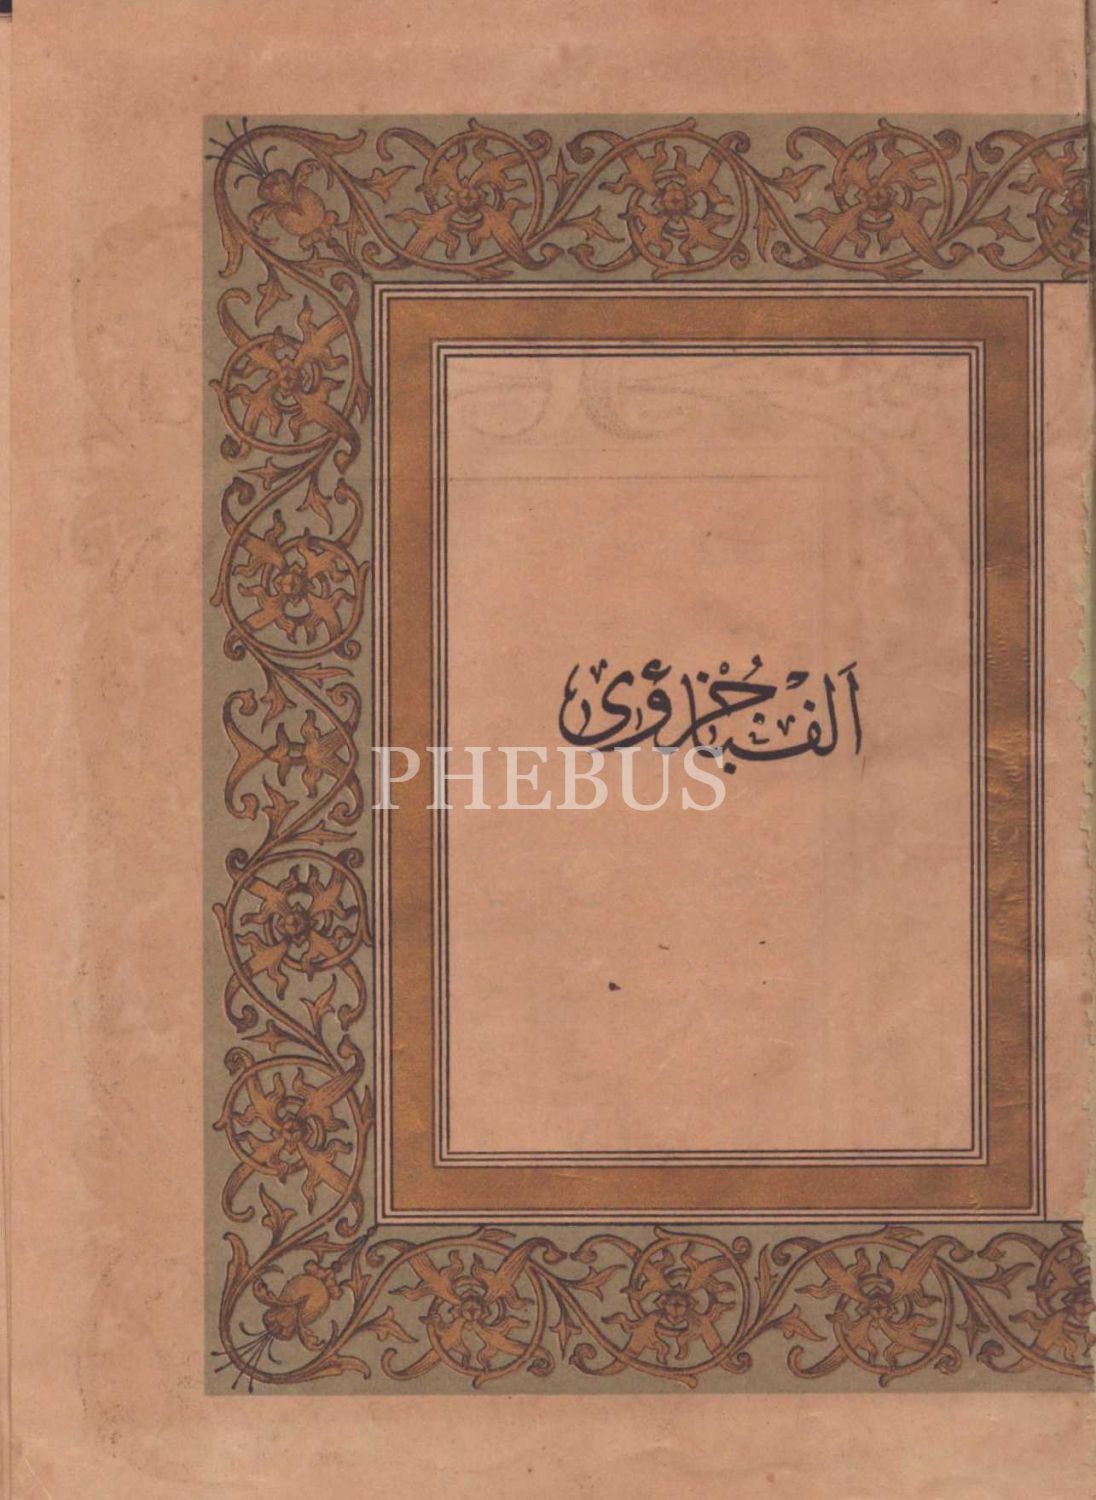 الفبا جزؤى
PHEBUS